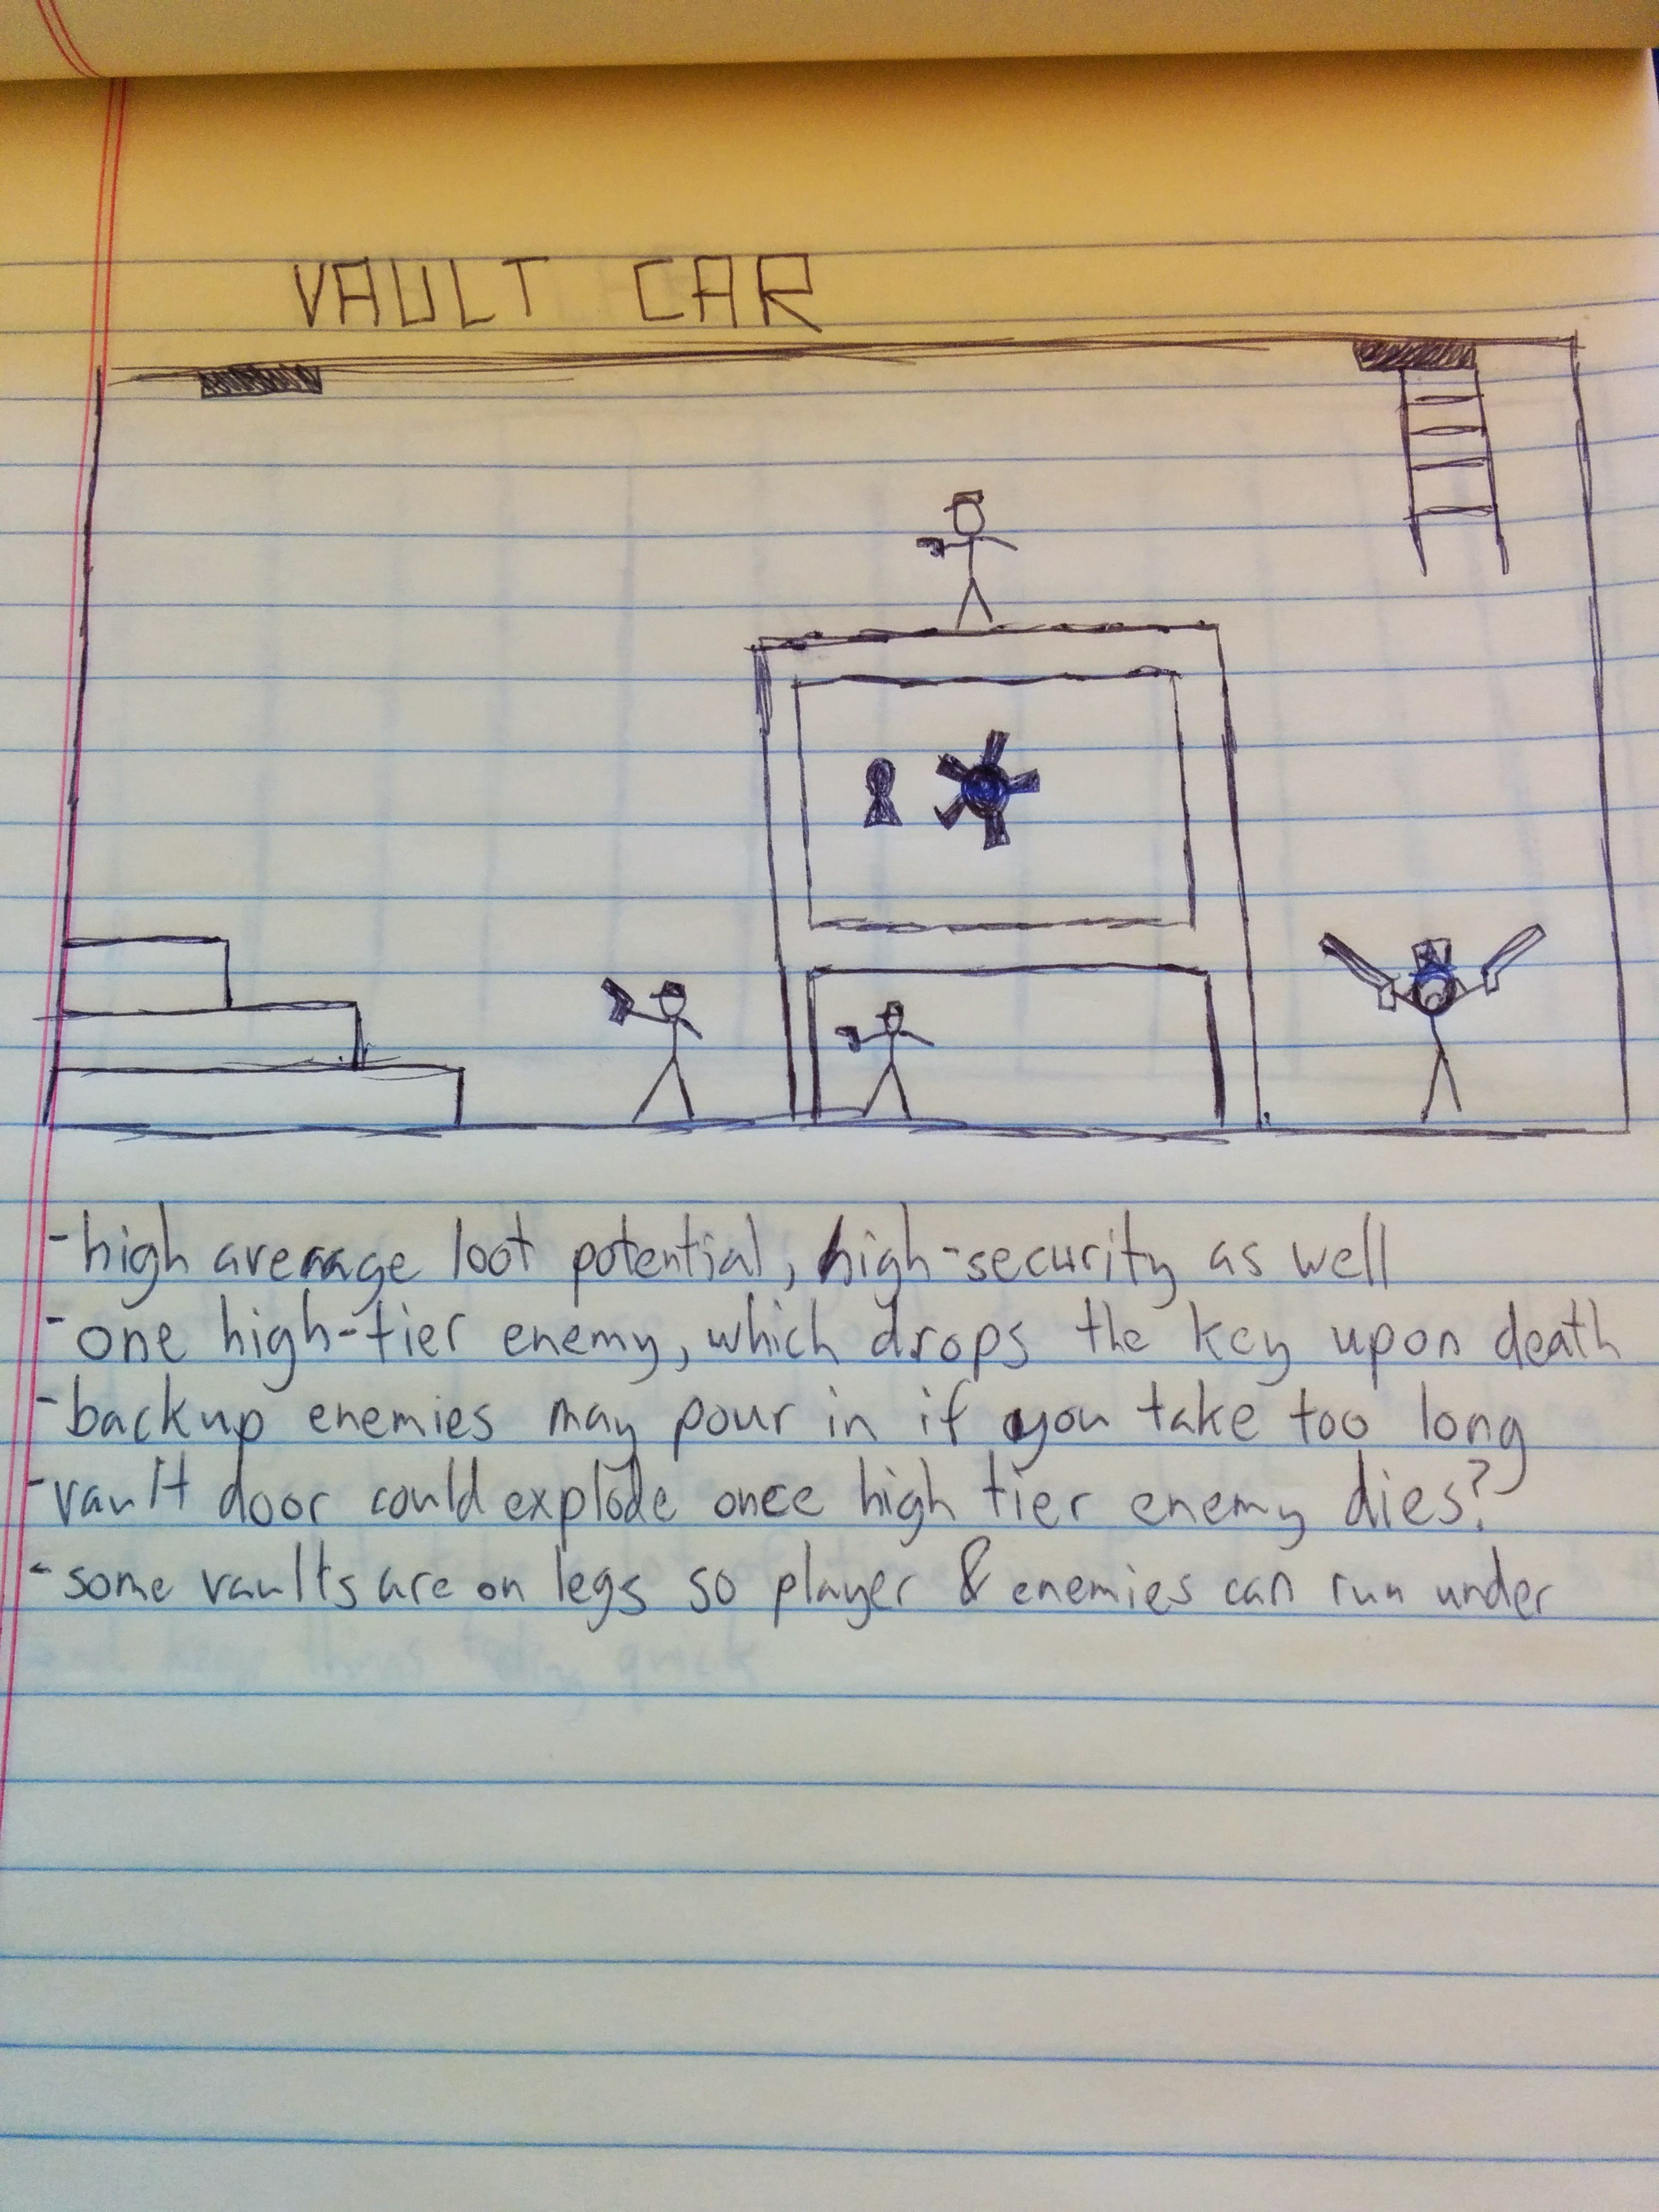 VAULT CAR
-high average loot potential, high-security as well
-one high-tier enemy, which drops the key upon death
-backup enemies may pour in if you take too long
-vault door could explode once high tier enemy dies?
-some vaults are on legs so player & enemies can run under